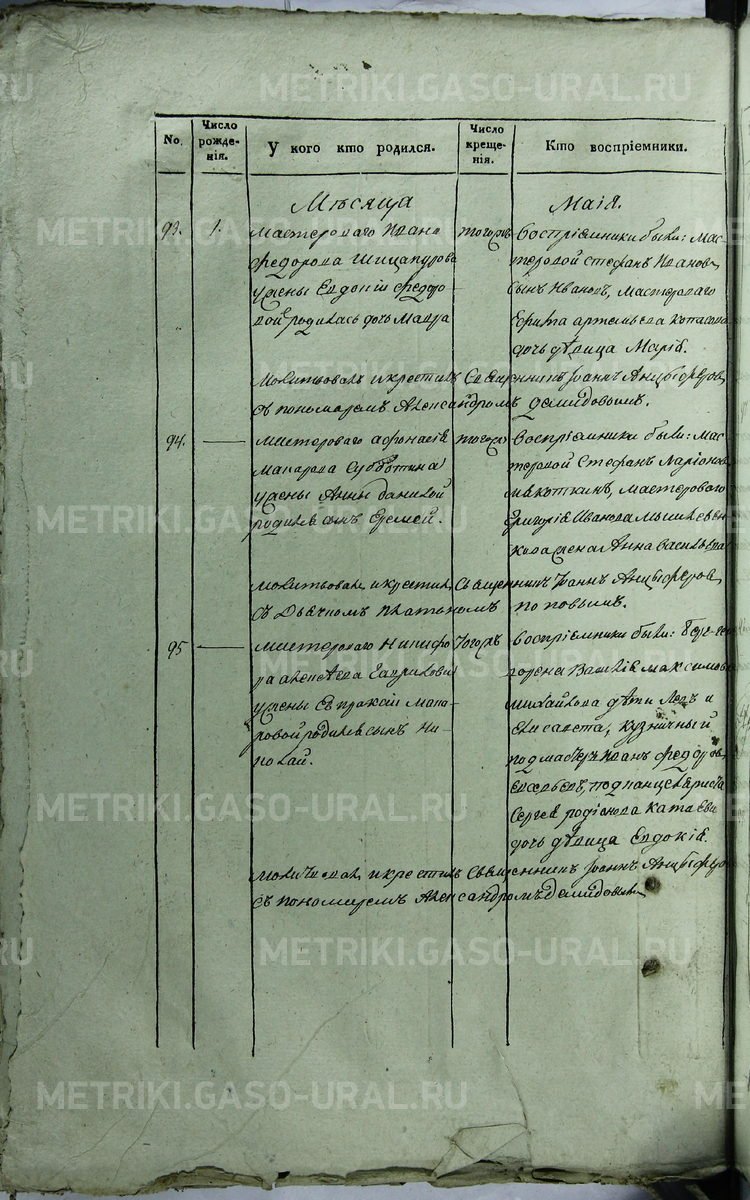 METRIKI.GASO-URAL.RU
No.
Число рожденія.
У кого кто родился.
Число крещенія.
Кто воспріемники.
Мѣсяца
Маія.
93.
1.
мастероваго Ивана
Федорова
у жены Евдокіи Федоро
вой родилась дочь Мавра
тогожъ
Воспріемники были: мас
теровой Стефанъ Иванов
сынъ Ивановъ, мастероваго
Ефима Артемьева
дочь дѣвица Марія.
Молитвовалъ и крестилъ Священникъ Іоаннъ Анцыферовъ
съ пономаремъ Александромъ Демидовымъ.
94.
мастероваго Афонасія
Макарова Субботина
у жены Анны Даниловой
родился сынъ Еремей.
тогожъ
Воспріемники были: мас
теровой Стефанъ Ларіонов
мастероваго
Григорія Иванова
жена Анна Василь
Молитвовалъ и крестилъ Священникъ Іоаннъ Анцыферовъ
съ Дьячкомъ Платономъ Поповымъ.
95
мастероваго Никифо
ра Алексѣева Гаврилова
у жены Евпраксіи Мака
ровой родился сынъ Ни
колай.
Тогожъ
Воспріемники были:
Василія Максимова
Михайлова дѣти Левъ и
Елисавета, кузничный
подмастеръ Иванъ Федоров
Сергея Родіонова Катаева
дочь дѣвица Евдокія.
Молитвовалъ и крестилъ Священникъ Іоаннъ Анцыферовъ
съ пономаремъ Александромъ Демидовымъ